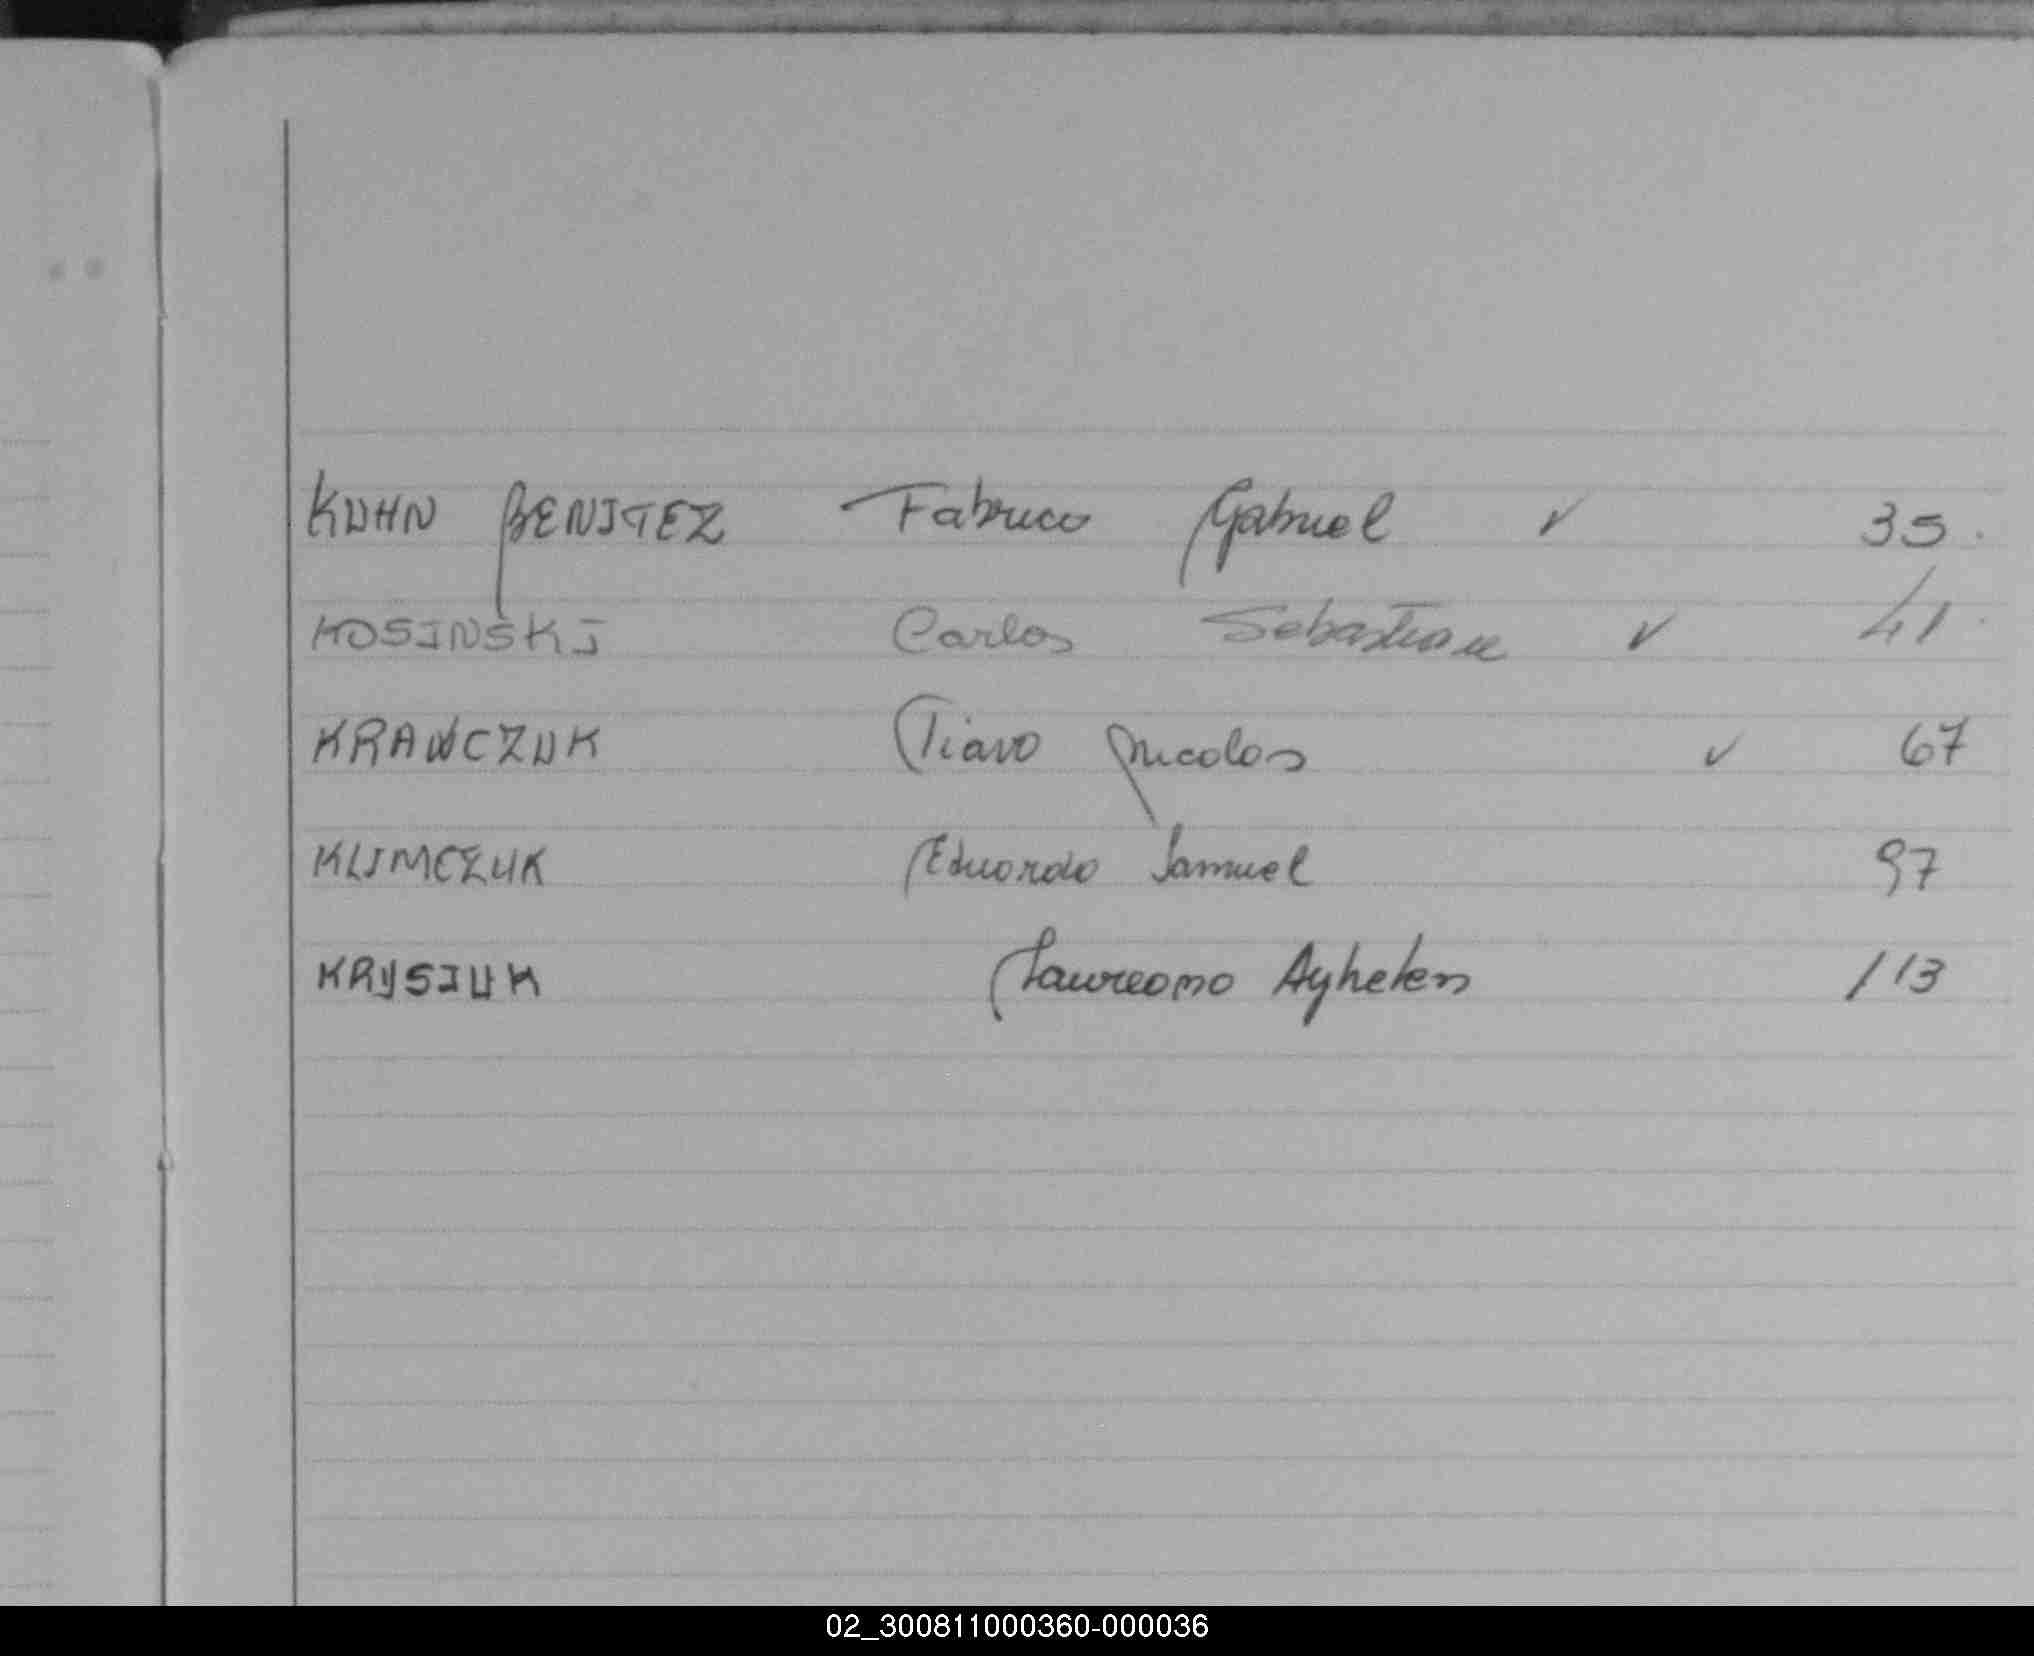 KUHN BENITEZ Fabricio Gabriel ✓ 35.
KOSINSKI Carlos Sebastian ✓ 41.
KRAWCZUK Nicolas ✓ 67
KLIMCZUK Eduardo Samuel 97
KRYSIUK Laureano 113
02_300811000360-000036